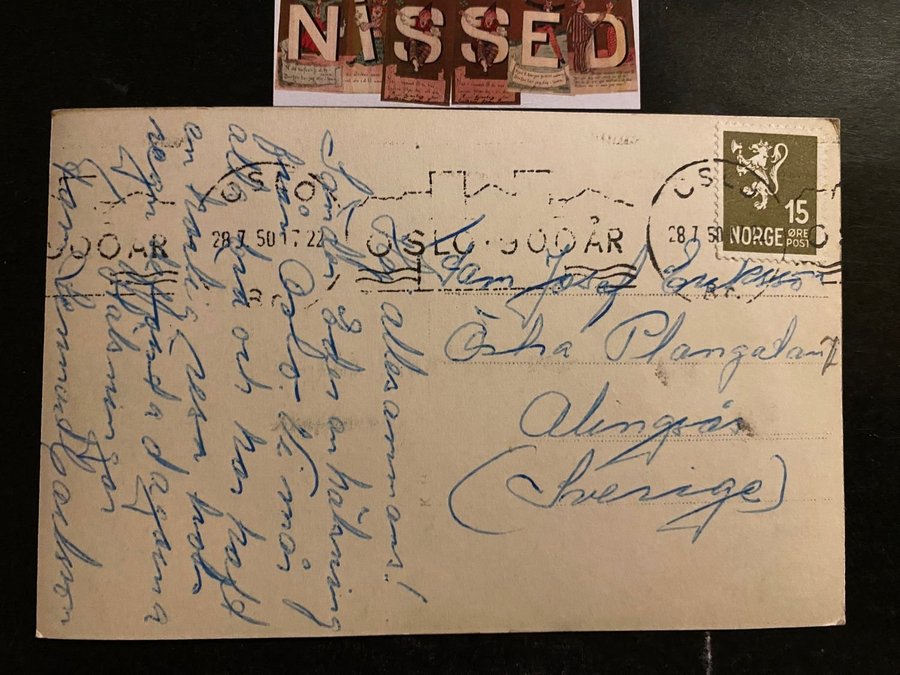 NISSED
NORGE
15
ØRE
POST
OSLO
28.7.50 17 22
OSLO · 900 ÅR
900 ÅR
28.7.50
Fam Josef Eriksson
Östra Plangatan 7
Alingsås
(Sverige)
Hej allesammans!
Sänder Eder en hälsning
från Oslo. Vi mår
alla bra och har haft
en härlig resa trots
regn de första dagarna
Hälsningar